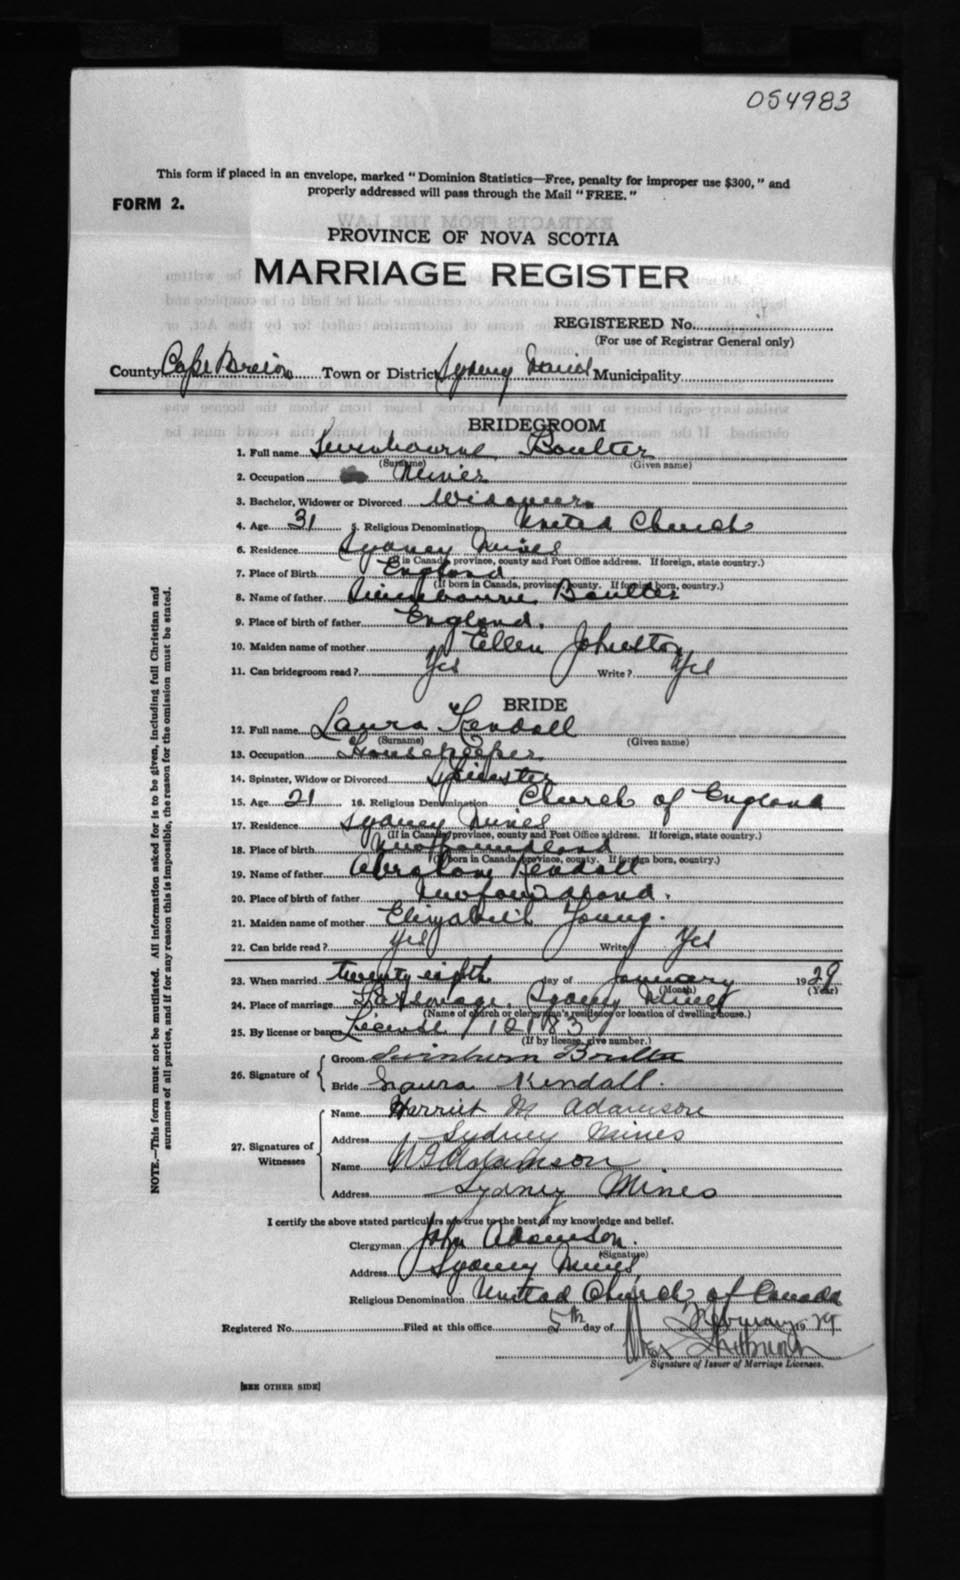 054983
This form if placed in an envelope, marked "Dominion Statistics—Free, penalty for improper use $300," and
properly addressed will pass through the Mail "FREE."
FORM 2.
PROVINCE OF NOVA SCOTIA
MARRIAGE REGISTER
REGISTERED No.
(For use of Registrar General only)
County Cape Breton Town or District Sydney Mines Municipality
BRIDEGROOM
1. Full name Swinbourne Boulter
(Surname) (Given name)
2. Occupation Miner
3. Bachelor, Widower or Divorced Widower
4. Age 31 5. Religious Denomination United Church
6. Residence Sydney Mines
(If in Canada, province, county and Post Office address. If foreign, state country.)
7. Place of Birth England
(If born in Canada, province, county. If foreign born, country.)
8. Name of father Swinbourne Boulter
9. Place of birth of father England.
10. Maiden name of mother Ellen Johnston
11. Can bridegroom read? Yes Write? Yes
BRIDE
12. Full name Laura Kendall
(Surname) (Given name)
13. Occupation Housekeeper
14. Spinster, Widow or Divorced Spinster
15. Age 21 16. Religious Denomination Church of England
17. Residence Sydney Mines
(If in Canada, province, county and Post Office address. If foreign, state country.)
18. Place of birth Newfoundland
(If born in Canada, province, county. If foreign born, country.)
19. Name of father Kendall
20. Place of birth of father Newfoundland.
21. Maiden name of mother Elizabeth Young.
22. Can bride read? Yes Write Yes
23. When married twenty eighth day of January 1929
(Month) (Year)
24. Place of marriage Parsonage, Sydney Mines
(Name of church or clergyman's residence or location of dwelling house.)
25. By license or banns License
(If by license, give number.)
26. Signature of
Groom Boulter
Bride Laura Kendall.
27. Signatures of Witnesses
Name Harriet M Adamson
Address Sydney Mines
Name Adamson
Address Sydney Mines
I certify the above stated particulars are true to the best of my knowledge and belief.
Clergyman John Adamson.
(Signature)
Address Sydney Mines
Religious Denomination United Church of Canada
Registered No. Filed at this office 5th day of February 1929
Signature of Issuer of Marriage Licenses.
[SEE OTHER SIDE]
NOTE.—This form must not be mutilated. All information asked for is to be given, including full Christian and
surnames of all parties, and if for any reason this is impossible, the reason for the omission must be stated.